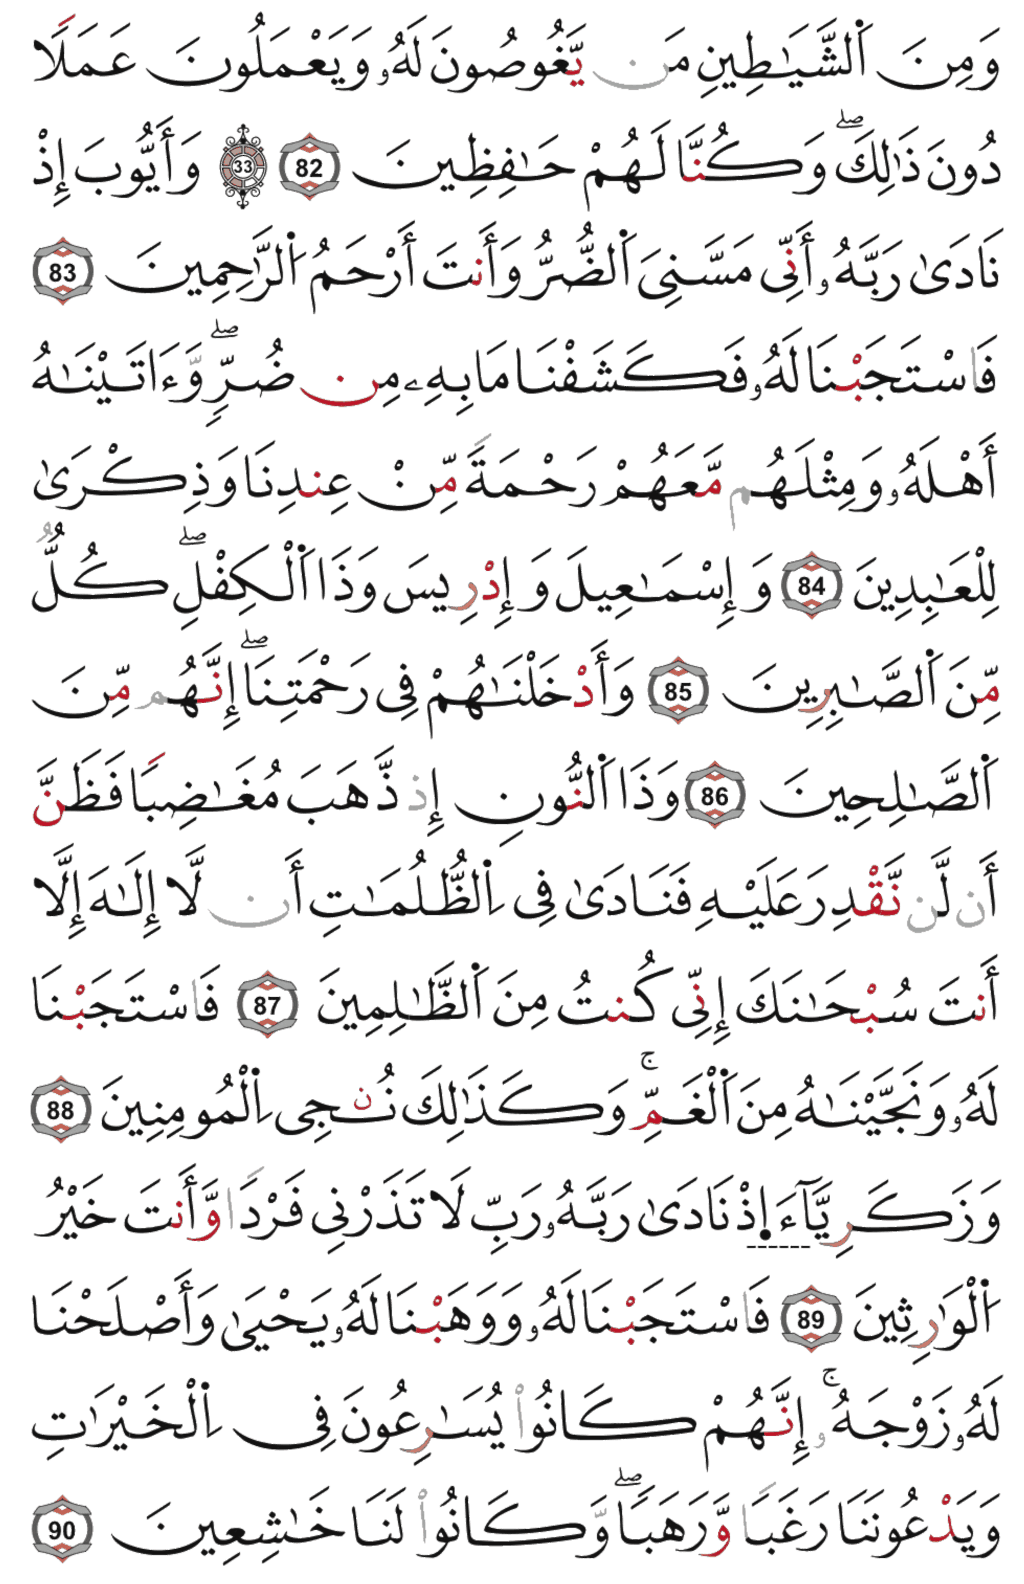 وَمِنَ ٱلشَّيَٰطِينِ مَن يَّغُوصُونَ لَهُۥ وَيَعْمَلُونَ عَمَلًا
دُونَ ذَٰلِكَۖ وَكُنَّا لَهُمْ حَٰفِظِينَ 82 33 وَأَيُّوبَ إِذْ
نَادَىٰ رَبَّهُۥ أَنِّى مَسَّنِىَ ٱلضُّرُّ وَأَنتَ أَرْحَمُ ٱلرَّٰحِمِينَ 83
فَاسْتَجَبْنَا لَهُۥ فَكَشَفْنَا مَا بِهِۦ مِن ضُرٍّۖ وَّءَاتَيْنَٰهُ
أَهْلَهُۥ وَمِثْلَهُم مَّعَهُمْ رَحْمَةً مِّنْ عِندِنَا وَذِكْرَىٰ
لِلْعَٰبِدِينَ 84 وَإِسْمَٰعِيلَ وَإِدْرِيسَ وَذَا ٱلْكِفْلِۖ كُلٌّ
مِّنَ ٱلصَّٰبِرِينَ 85 وَأَدْخَلْنَٰهُمْ فِى رَحْمَتِنَاۖ إِنَّهُم مِّنَ
ٱلصَّٰلِحِينَ 86 وَذَا ٱلنُّونِ إِذ ذَّهَبَ مُغَٰضِبًا فَظَنَّ
أَن لَّن نَّقْدِرَ عَلَيْهِ فَنَادَىٰ فِى ٱلظُّلُمَٰتِ أَن لَّا إِلَٰهَ إِلَّا
أَنتَ سُبْحَٰنَكَ إِنِّى كُنتُ مِنَ ٱلظَّٰلِمِينَ 87 فَاسْتَجَبْنَا
لَهُۥ وَنَجَّيْنَٰهُ مِنَ ٱلْغَمِّۚ وَكَذَٰلِكَ نُـۨجِى ٱلْمُومِنِينَ 88
وَزَكَرِيَّآءَ إِذْ نَادَىٰ رَبَّهُۥ رَبِّ لَا تَذَرْنِى فَرْدًا وَّأَنتَ خَيْرُ
ٱلْوَٰرِثِينَ 89 فَاسْتَجَبْنَا لَهُۥ وَوَهَبْنَا لَهُۥ يَحْيَىٰ وَأَصْلَحْنَا
لَهُۥ زَوْجَهُۥۚ إِنَّهُمْ كَانُوا۟ يُسَٰرِعُونَ فِى ٱلْخَيْرَٰتِ
وَيَدْعُونَنَا رَغَبًا وَّرَهَبًاۖ وَّكَانُوا۟ لَنَا خَٰشِعِينَ 90